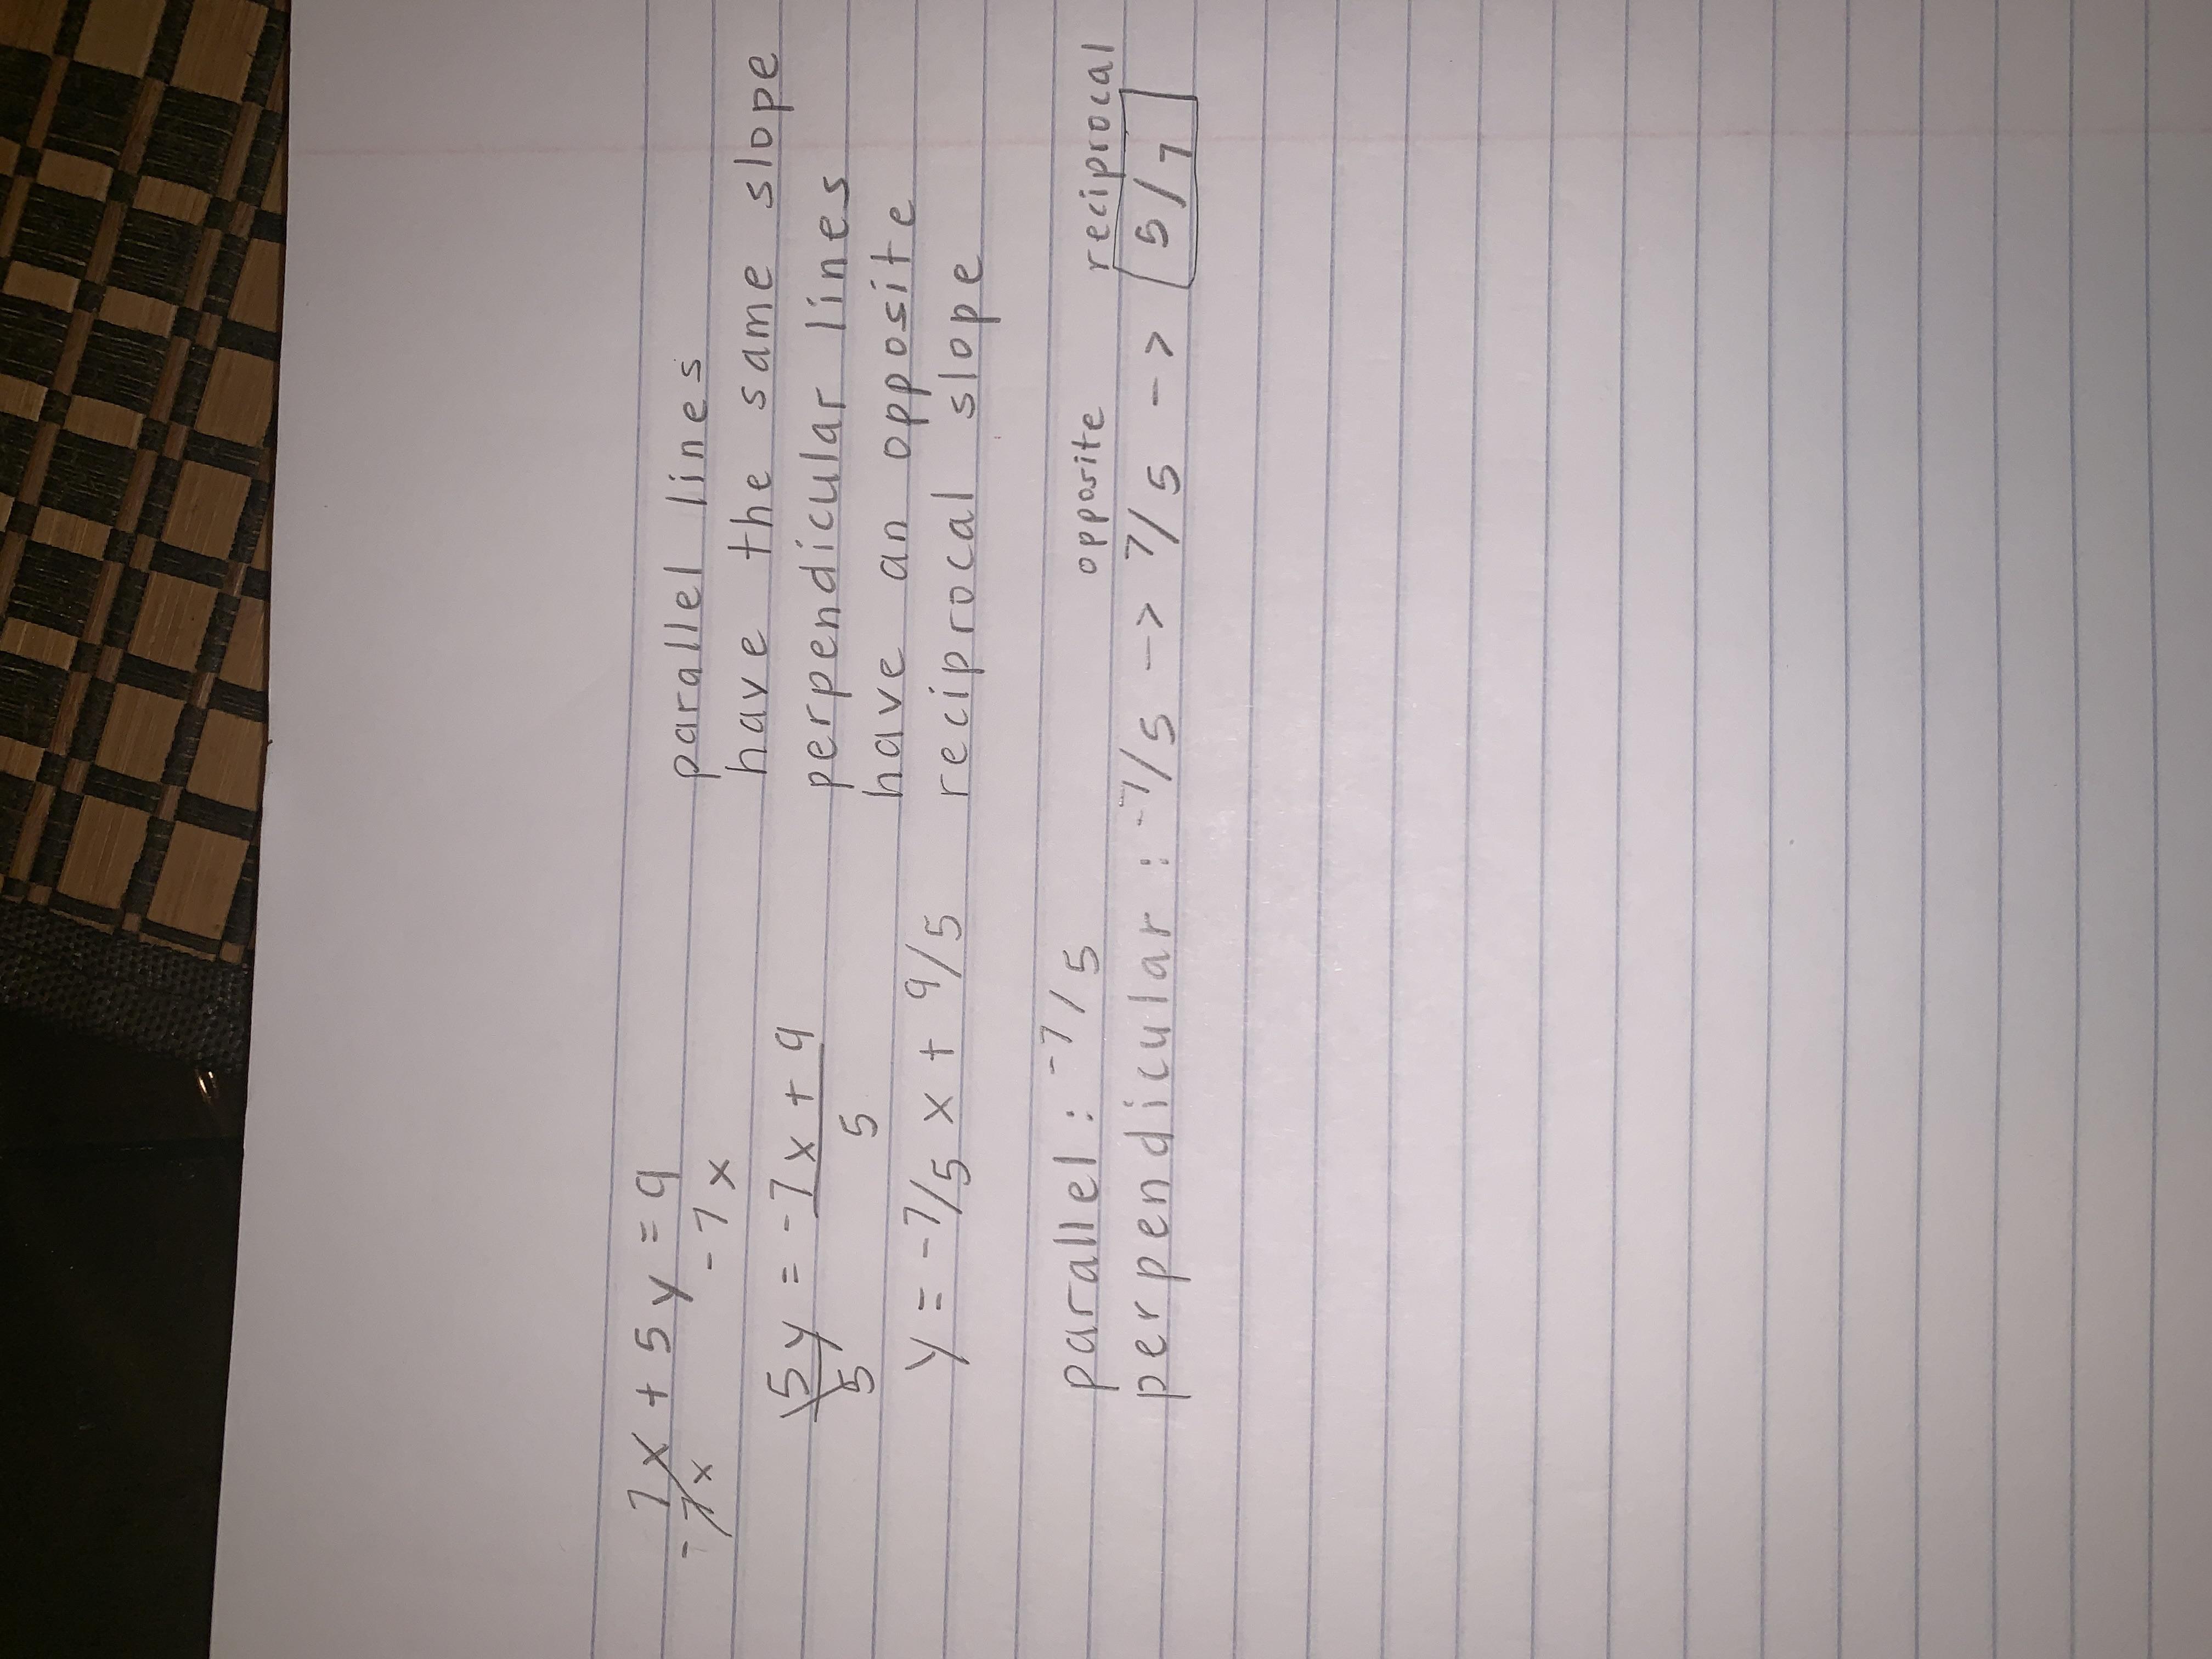 7x + 5y = 9
-7x -7x
5y = -7x + 9
5 5
y = -7/5 x + 9/5
parallel lines
have the same slope
perpendicular lines
have an opposite
reciprocal slope
parallel: -7/5
opposite reciprocal
perpendicular: -7/5 -> 7/5 -> 5/7